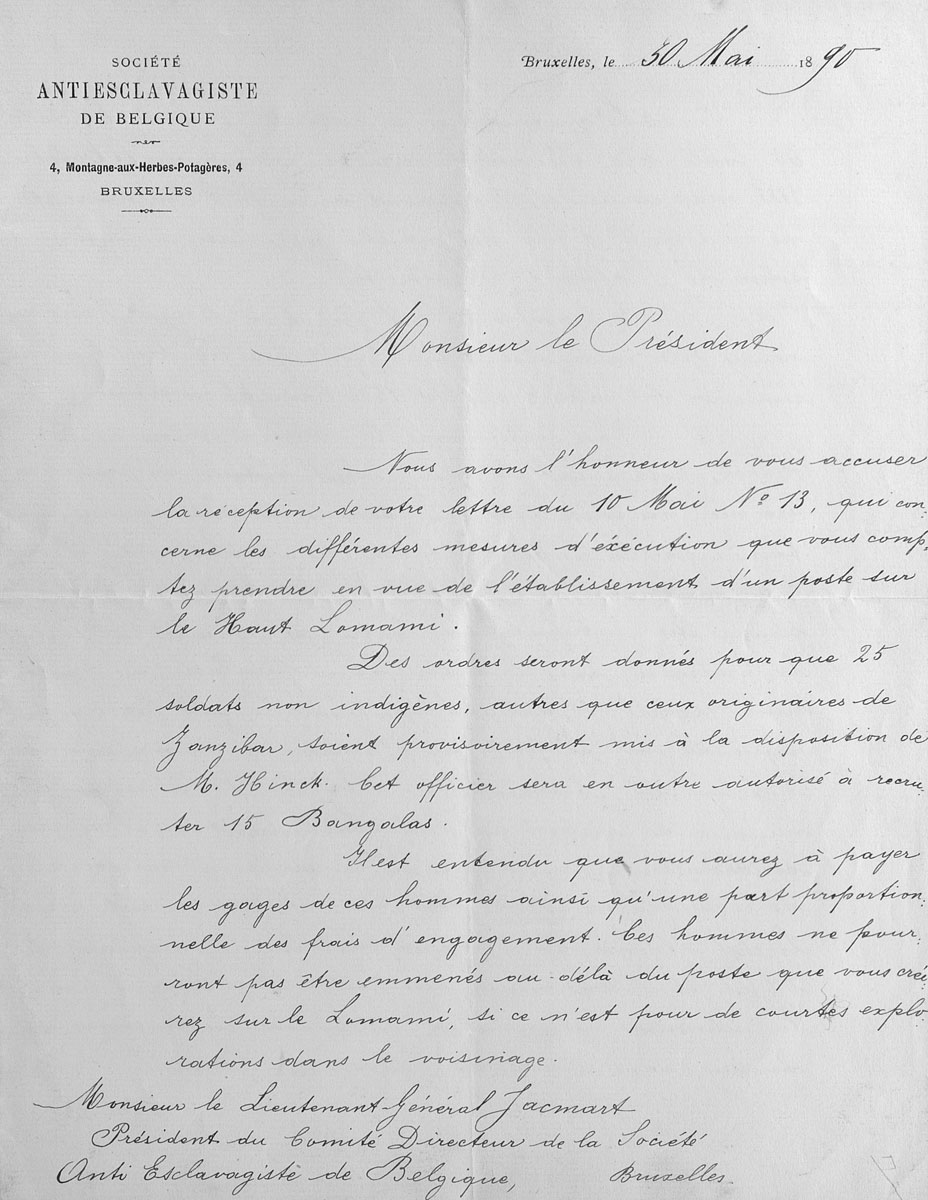 SOCIÉTÉ
ANTIESCLAVAGISTE
DE BELGIQUE
4, Montagne-aux-Herbes-Potagères, 4
BRUXELLES
Bruxelles, le 30 Mai 1890
Monsieur le Président
Nous avons l'honneur de vous accuser
la réception de votre lettre du 10 Mai Nº 13, qui con-
cerne les différentes mesures d'éxécution que vous comp-
tez prendre en vue de l'établissement d'un poste sur
le Haut Lomami.
Des ordres seront donnés pour que 25
soldats non indigènes, autres que ceux originaires de
Zanzibar, soient provisoirement mis à la disposition de
M. Hinck. Cet officier sera en outre autorisé à recru-
ter 15 Bangalas.
Il est entendu que vous aurez à payer
les gages de ces hommes ainsi qu'une part proportion-
nelle des frais d'engagement. Ces hommes ne pour-
ront pas être emmenés au-délà du poste que vous crée-
rez sur le Lomami, si ce n'est pour de courtes explo
rations dans le voisinage.
Monsieur le Lieutenant-Général Jacmart
Président du Comité Directeur de la Société
Anti Esclavagiste de Belgique, Bruxelles.